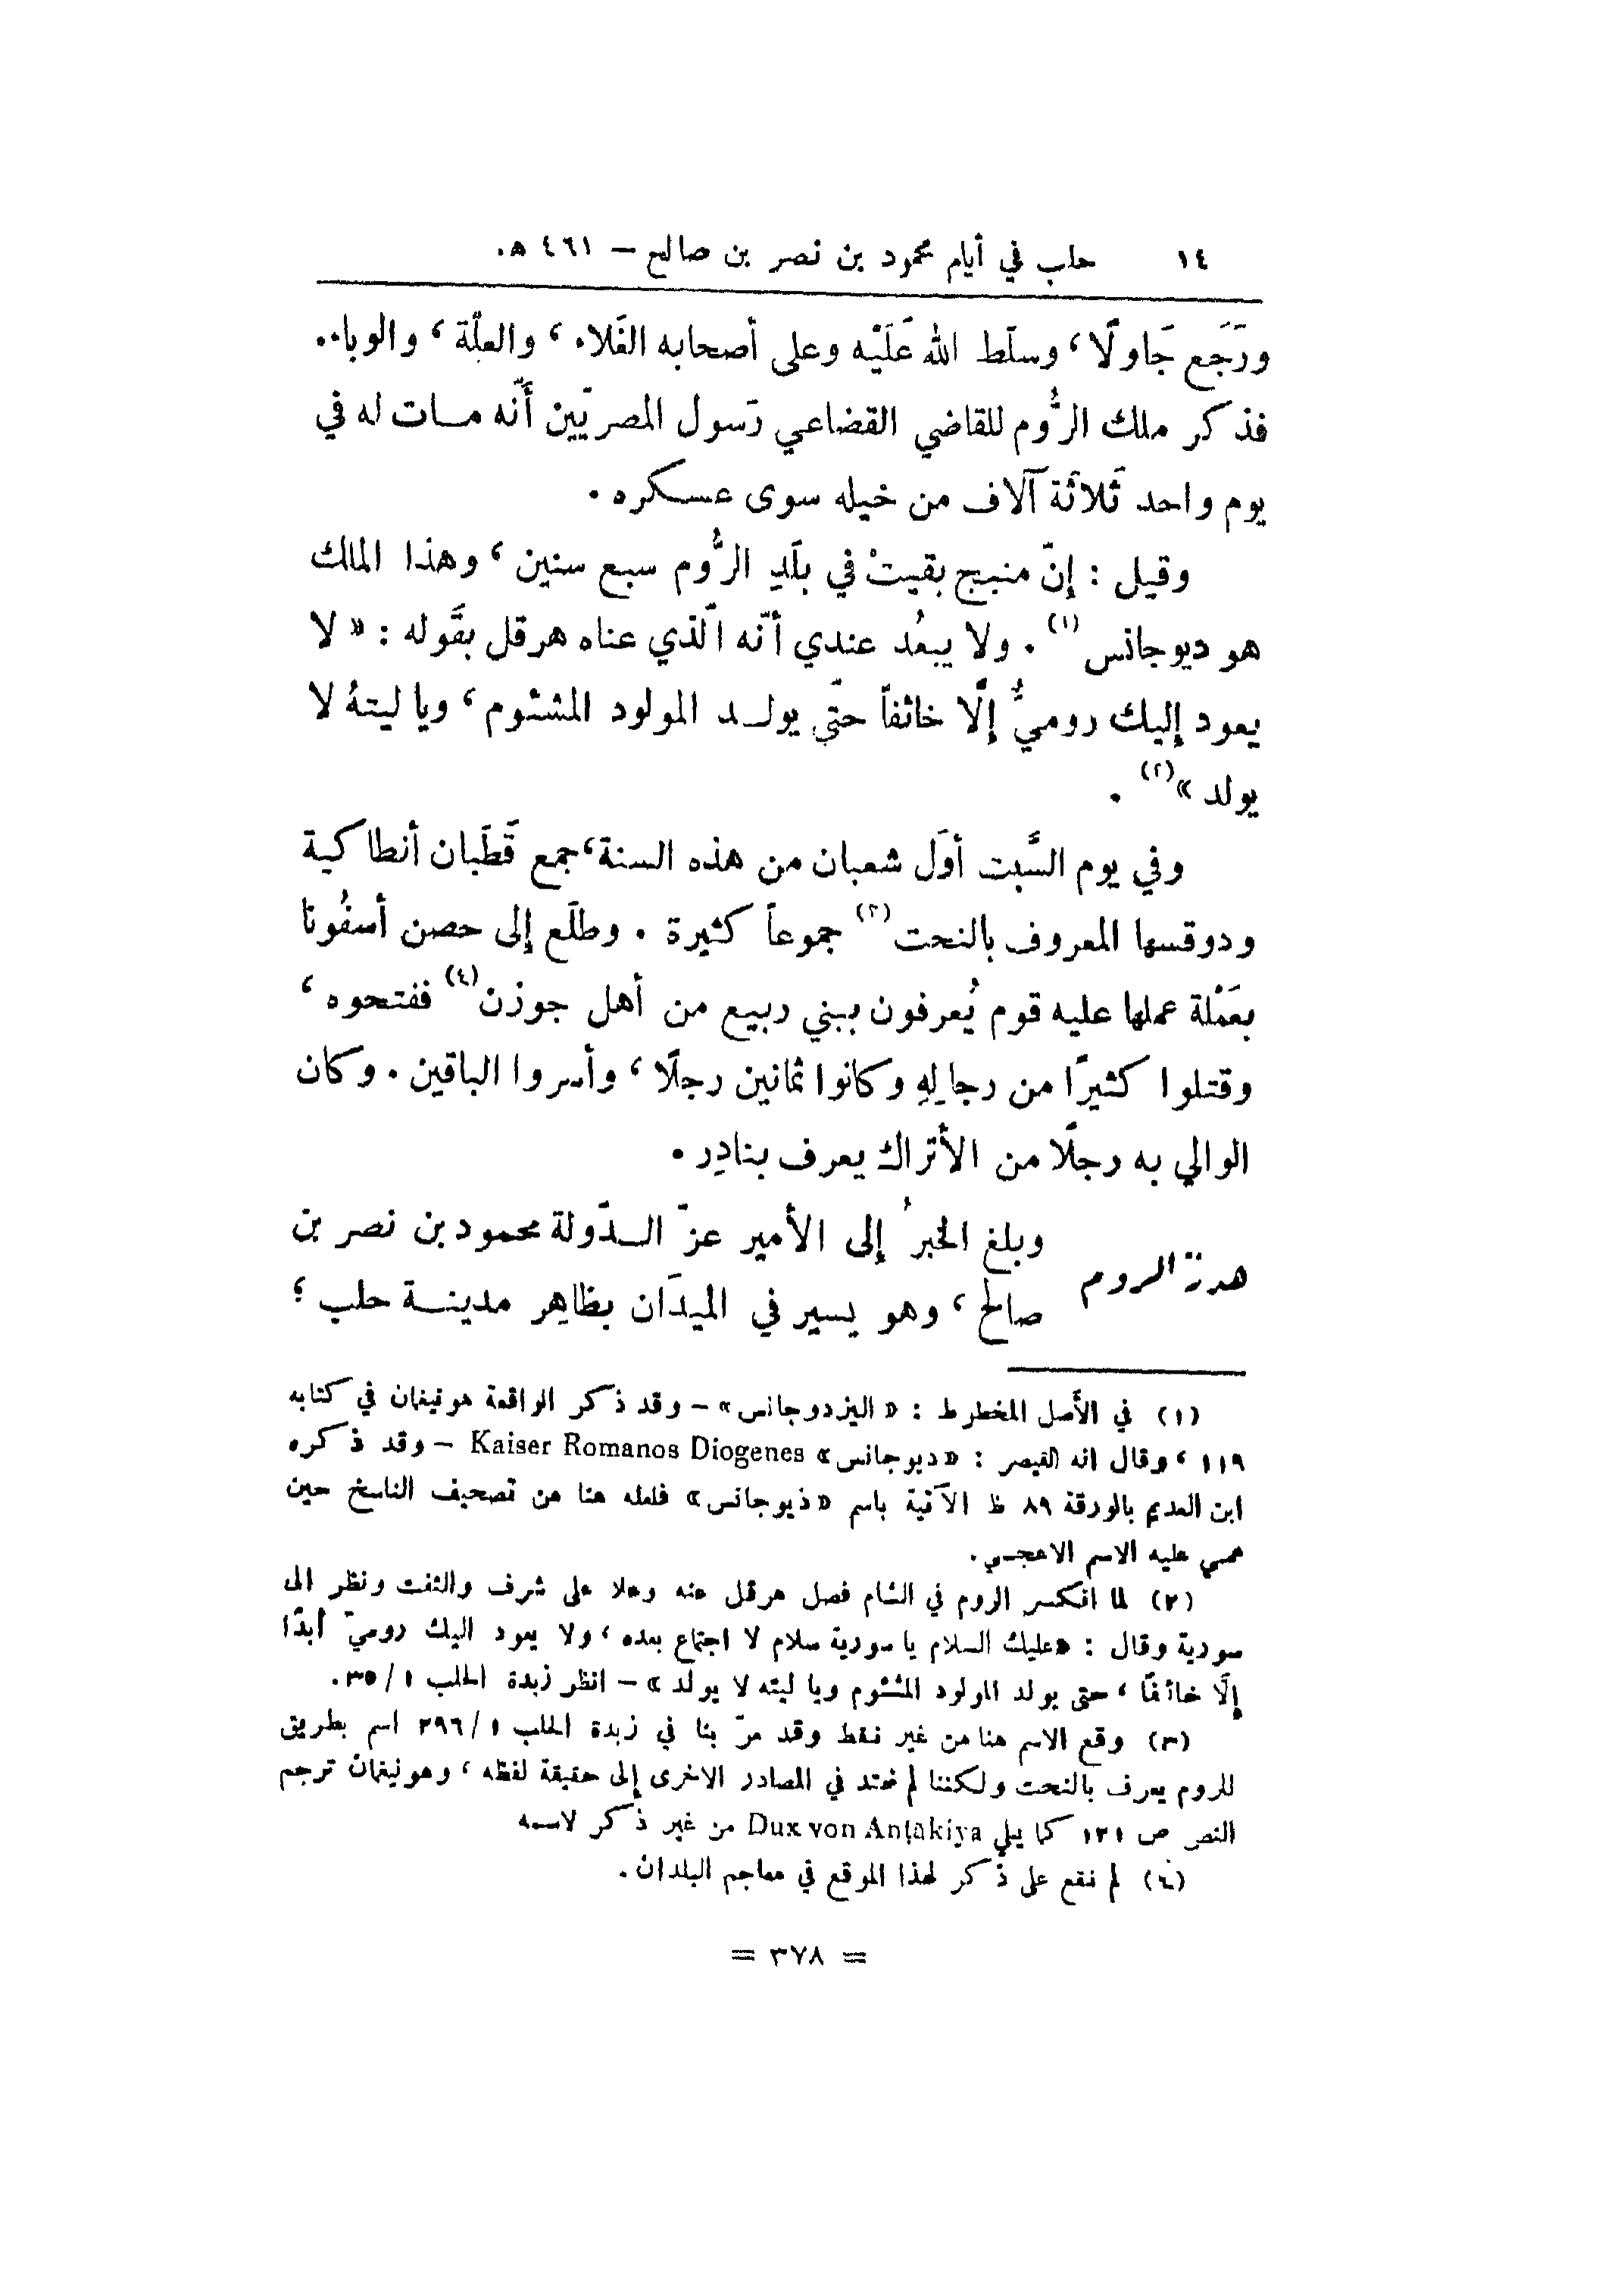 ١٤ حلب في أيام محمود بن نصر بن صالح – ٤٦١ هـ.
ورَجَع جَاولًا، وسلّط الله عَلَيْه وعلى أصحابه الغَلاء، والعلّة، والوباء.
فذكر ملك الرُّوم للقاضي القضاعي رَسول المصريّين أنّه مات له في
يوم واحد ثَلاثَة آلاف من خيله سوى عسكره.
وقيل : إنّ منبج بقيتْ في بلَدِ الرُّوم سبع سنين، وهذا الملك
هو ديوجانس (١). ولا يبعُد عندي أنّه الّذي عناه هرقل بقَوله : « لا
يعود إليك روميٌّ إلّا خائفاً حتّى يولد المولود المشئوم، ويا ليتهُ لا
يولد » (٢).
وفي يوم السَّبت أوّل شعبان من هذه السنة، جمع قَطَبان أنطاكية
ودوقسها المعروف بالنحت (٣) جموعاً كثيرة. وطلَع إلى حصن أسفُونا
بعَمْلة عملها عليه قوم يُعرفون ببني ربيع من أهل جوزن (٤) ففتحوه،
وقتلوا كثيرًا من رجالِهِ وكانوا ثمانين رجلًا، وأسروا الباقين. وكان
الوالي به رجلًا من الأتراك يعرف بنادِر.
هدنة الروم
وبلغ الخبرُ إلى الأمير عزّ الدّولة محمود بن نصر بن
صالح، وهو يسير في الميدَان بظاهِر مدينة حلب؛
(١) في الأصل المخطوط : « اليزدوجانس » – وقد ذكر الواقعة هونيغمان في كتابه
١١٩، وقال انه القيصر : «ديوجانس» Kaiser Romanos Diogenes – وقد ذكره
ابن العديم بالورقة ٨٩ ظ الآتية باسم «ذيوجانس» فلعله هنا من تصحيف الناسخ حين
عمي عليه الاسم الاعجمي.
(٢) لما انكسر الروم في الشام فصل هرقل عنه وعلا على شرف والتفت ونظر الى
سورية وقال : «عليك السلام يا سورية سلام لا اجتماع بعده، ولا يعود اليك روميّ أبدًا
إلّا خائفًا، حتى يولد المولود المشئوم ويا ليته لا يولد» – انظر زبدة الحلب ١/٣٥.
(٣) وقع الاسم هنا من غير نقط وقد مرّ بنا في زبدة الحلب ١/٢٩٦ اسم بطريق
للروم يعرف بالنحت ولكننا لم نهتد في المصادر الاخرى إلى حقيقة لفظه، وهونيغمان ترجم
النص ص ١٢١ كما يلي Dux von Anṭākiya من غير ذكر لاسمه
(٤) لم نقع على ذكر لهذا الموقع في معاجم البلدان.
= ٣٧٨ =